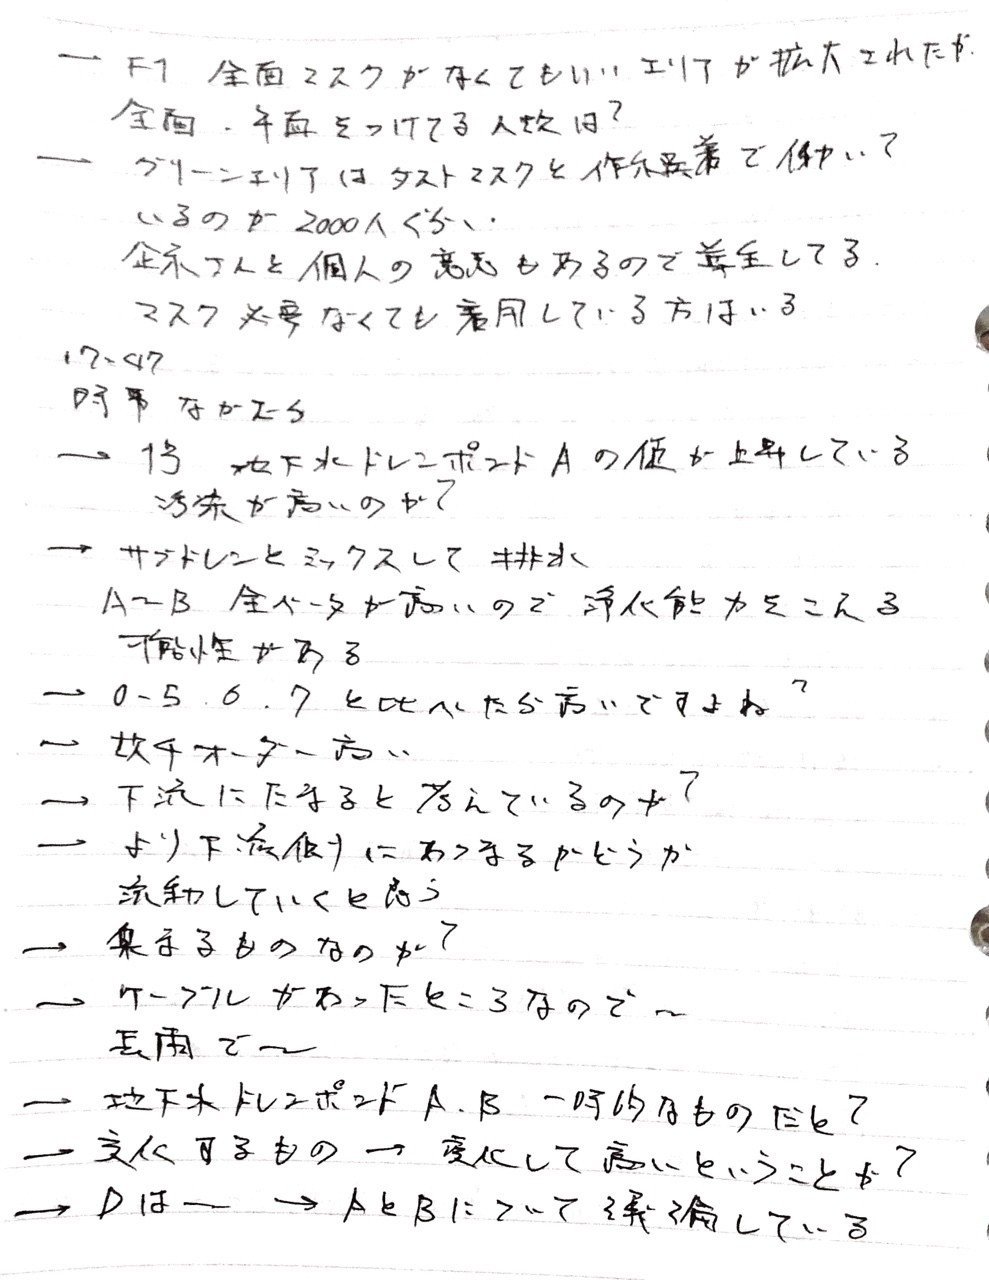 → F1 全面マスクがなくてもいいエリアが拡大されたが、
全面・半面をつけてる人数は?
→ グリーンエリアはダストマスクと作業着で働いて
いるのが2000人ぐらい.
企業さんと個人の意志もあるので着用してる.
マスク必要なくても着用している方はいる
17-47
時事 なかむら
→ 1号 地下水ドレンポンドAの値が上昇している
汚染が高いのか?
→ サブドレンとミックスして排水
A〜B 全ベータが高いので浄化能力をこえる
可能性がある
→ 0-5.6.7と比べたら高いですよね?
→ 数千オーダー高い
→ 下流にたまると考えているのか?
→ より下流側にあつまるかどうか
流動していくと思う
→ 集まるものなのか?
→ ケーブルがあったところなので〜
長雨で〜
→ 地下水ドレンポンドA.B 一時的なものだと?
→ 変化するもの → 変化して高いということか?
→ Dは〜 → AとBについて議論している